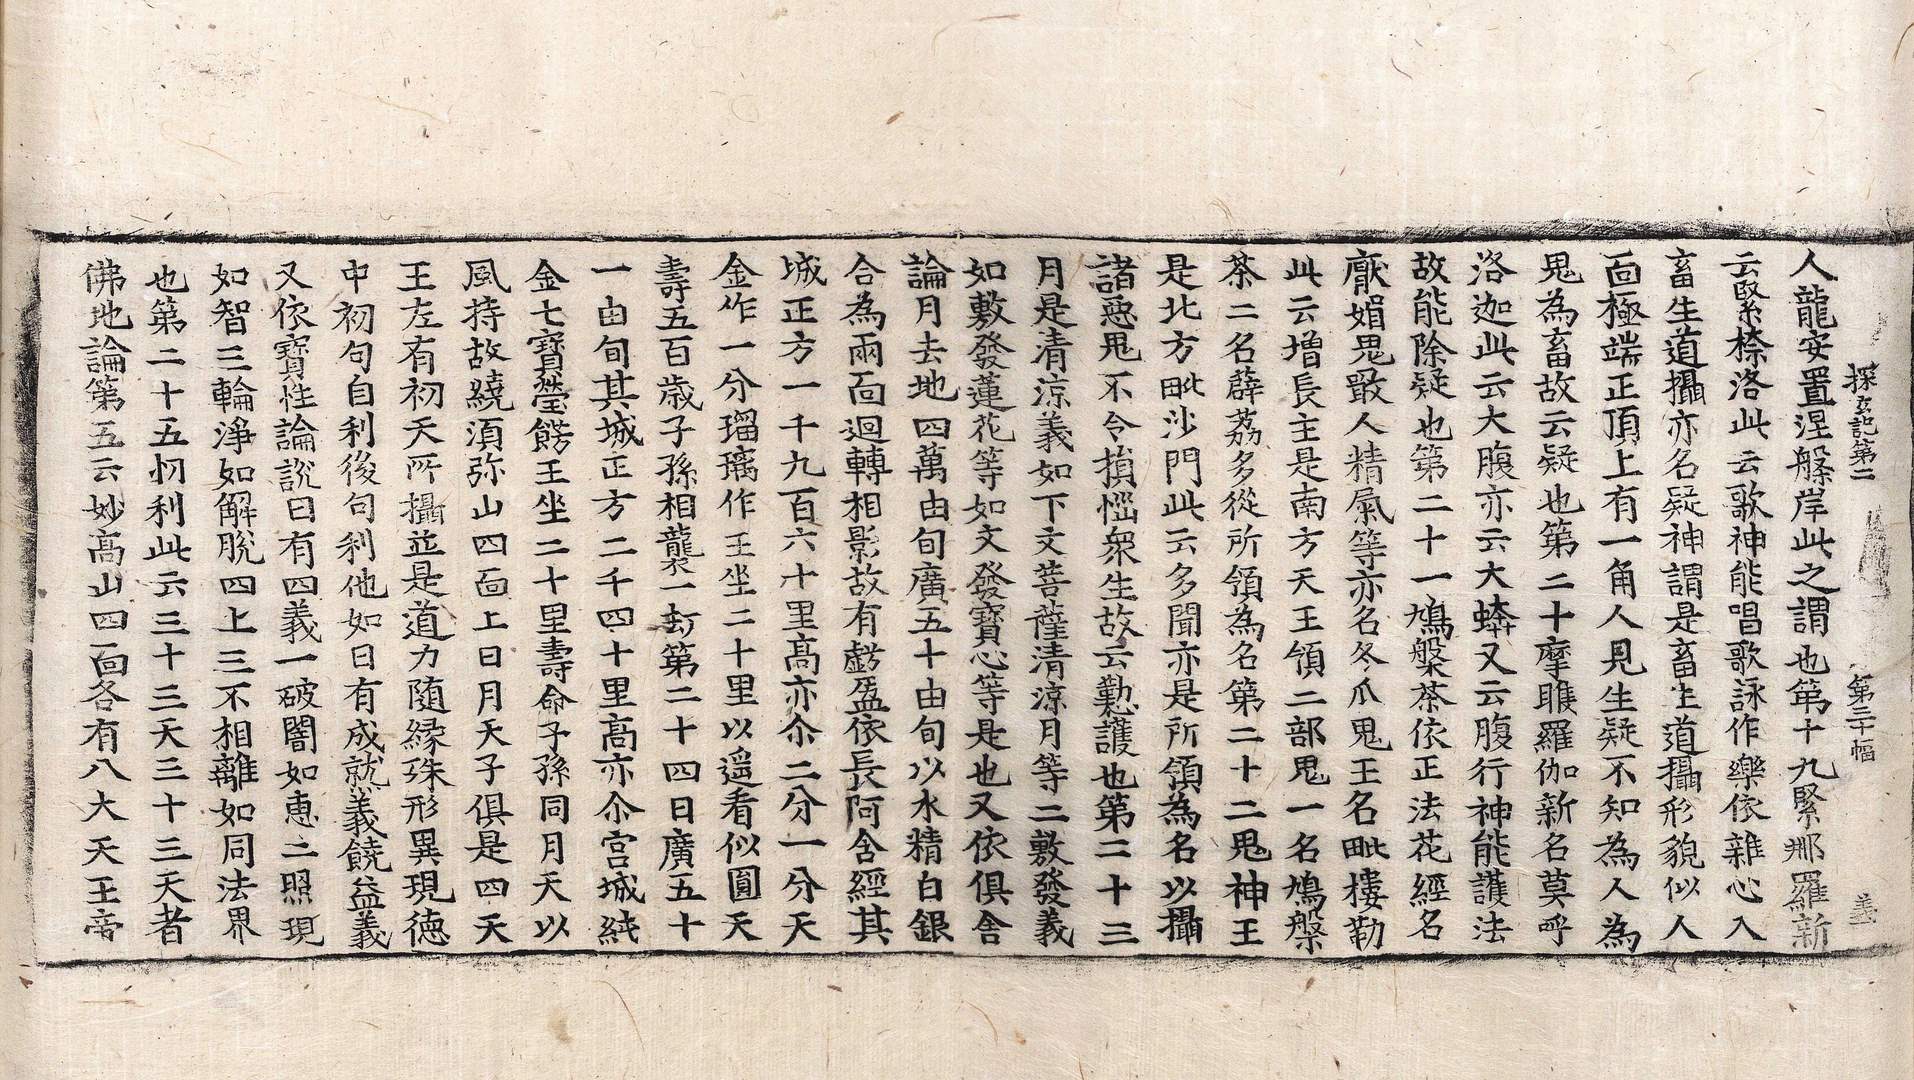 探玄記第二　第三十幅　義
人龍安置涅槃岸此之謂也第十九緊那羅新
云緊捺洛此云歌神能唱歌詠作樂依雜心入
畜生道攝亦名疑神謂是畜生道攝形貌似人
面極端正頂上有一角人見生疑不知為人為
鬼為畜故云疑也第二十摩睺羅伽新名莫呼
洛迦此云大腹亦云大蟒又云腹行神能護法
故能除疑也第二十一鳩槃荼依正法花經名
厭媚鬼噉人精氣等亦名冬瓜鬼王名毗樓勒
此云增長主是南方天王領二部鬼一名鳩槃
荼二名薜荔多從所領為名第二十二鬼神王
是北方毗沙門此云多聞亦是所領為名以攝
諸惡鬼不令損惱衆生故云勤護也第二十三
月是清涼義如下文菩薩清涼月等二敷發義
如敷發蓮花等如文發寶心等是也又依俱舍
論月去地四萬由旬廣五十由旬以水精白銀
合為兩面迴轉相影故有虧盈依長阿含經其
城正方一千九百六十里高亦尒二分一分天
金作一分瑠璃作王坐二十里以遥看似圓天
壽五百歲子孫相襲一劫第二十四日廣五十
一由旬其城正方二千四十里高亦尒宮城純
金七寶瑩餝王坐二十里壽命子孫同月天以
風持故繞須弥山四面上日月天子俱是四天
王左右初天所攝並是道力随緣殊形異現德
中初句自利後句利他如日有成就義饒益義
又依寶性論說日有四義一破闇如惠二照現
如智三輪淨如解脫四上三不相離如同法界
也第二十五忉利此云三十三天三十三天者
佛地論第五云妙高山四面各有八大天王帝